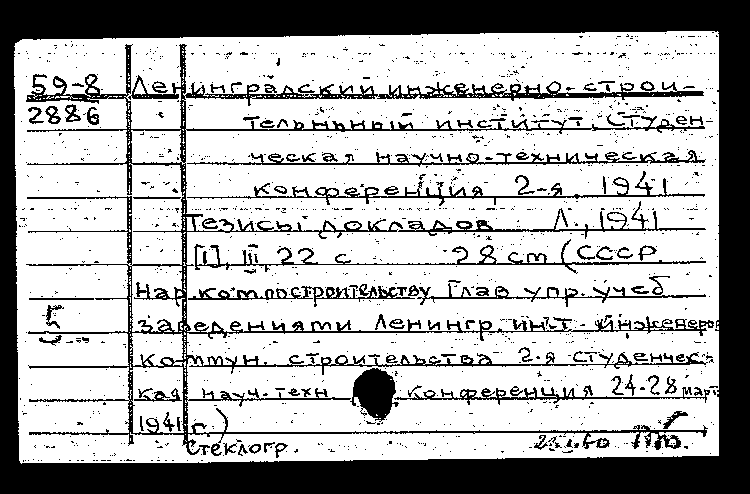 59-8 Ленинградский инженерно-строи-
2886 тельный институт. Студен-
ческая научно-техническая
конференция, 2-я, 1941
Тезисы докладов Л., 1941
[1], III, 22 с 28 cm (СССР.
Нар.ком.по строительству. Глав упр. учеб
заведениями Ленингр. ин-т инженеров
коммун. строительства 2-я студенчес-
кая науч.-техн конференция 24-28 март
1941 г.)
Стеклогр.